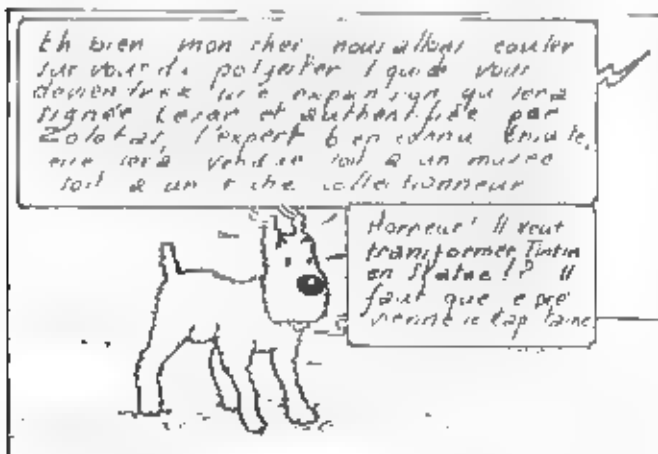 Eh bien mon cher nous allons couler
sur vous du polyester liquide vous
deviendrez une expansion qui sera
signée César et authentifiée par
Zolotas, l'expert bien connu Ensuite,
elle sera vendue soit à un musée
soit à un riche collectionneur
Horreur! Il veut
transformer Tintin
en statue!? Il
faut que je pré
vienne le capitaine